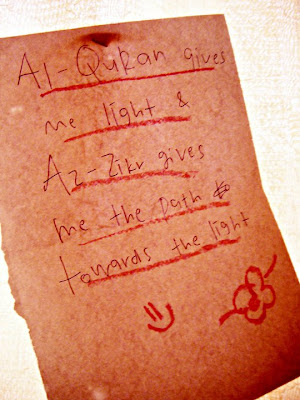 Al-Quran gives
me light &
Az-Zikr gives
me the path
towards the light